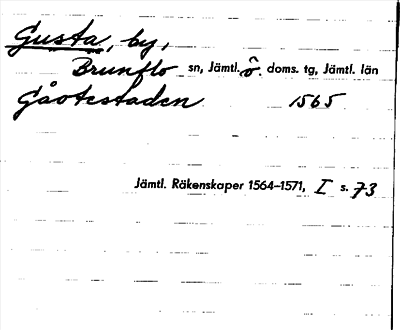 Gusta, by,
Brunflo sn, Jämtl. ö. doms. tg, Jämtl. län
Gåotestaden 1565
Jämtl. Räkenskaper 1564–1571, I s. 73